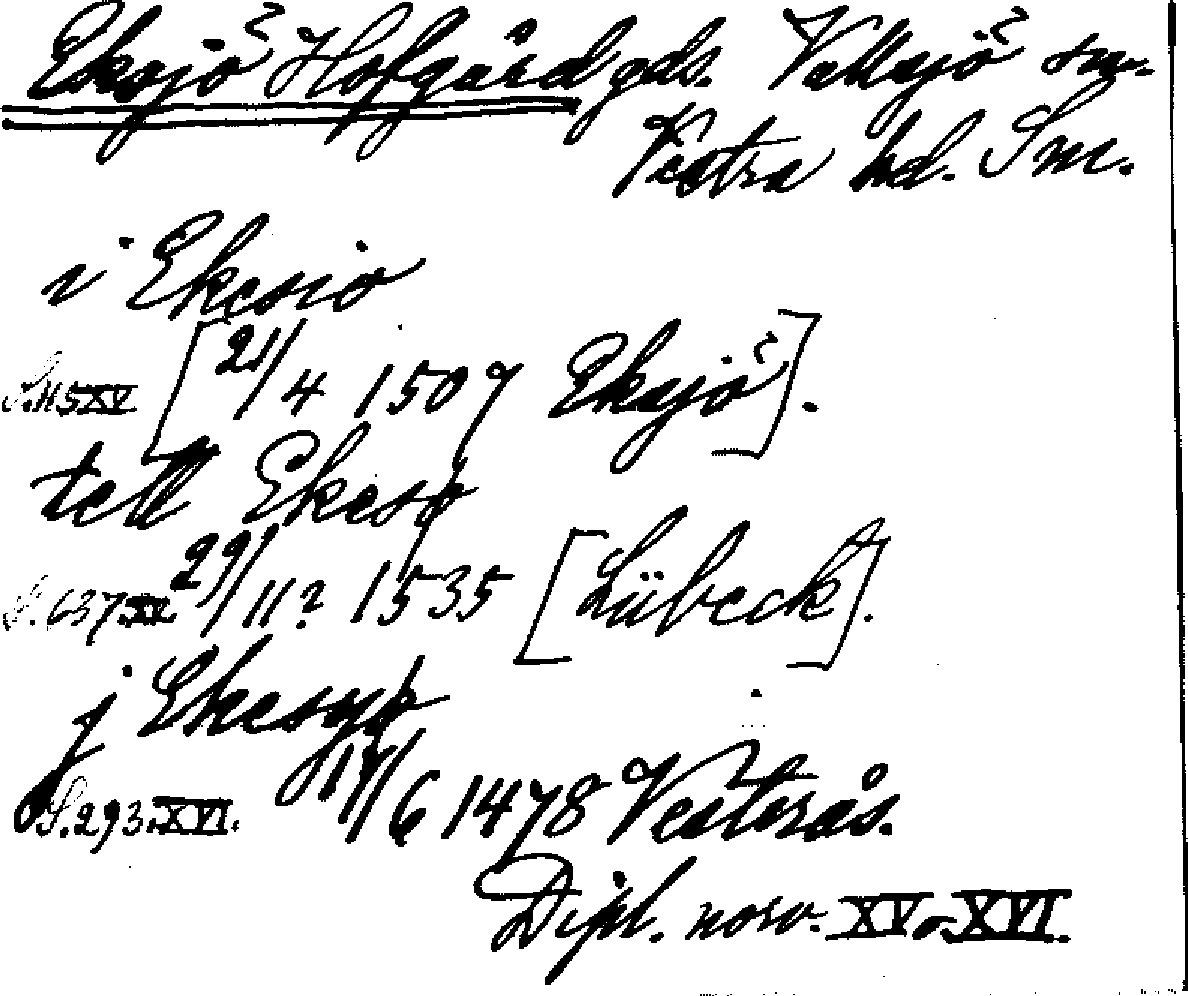 Eksjö Hofgård gds. Vallsjö sn.
Västra hd. Sm.
i Ekesiö
S. 115 XV [21/4 1507 Eksjö].
till Ekesø
S. 637 XV 29/11? 1535 [Lübeck].
j Ekesyø
S. 293. XVI. 17/6 1478 Vesterås.
Dipl. norv. XV o. XVI.